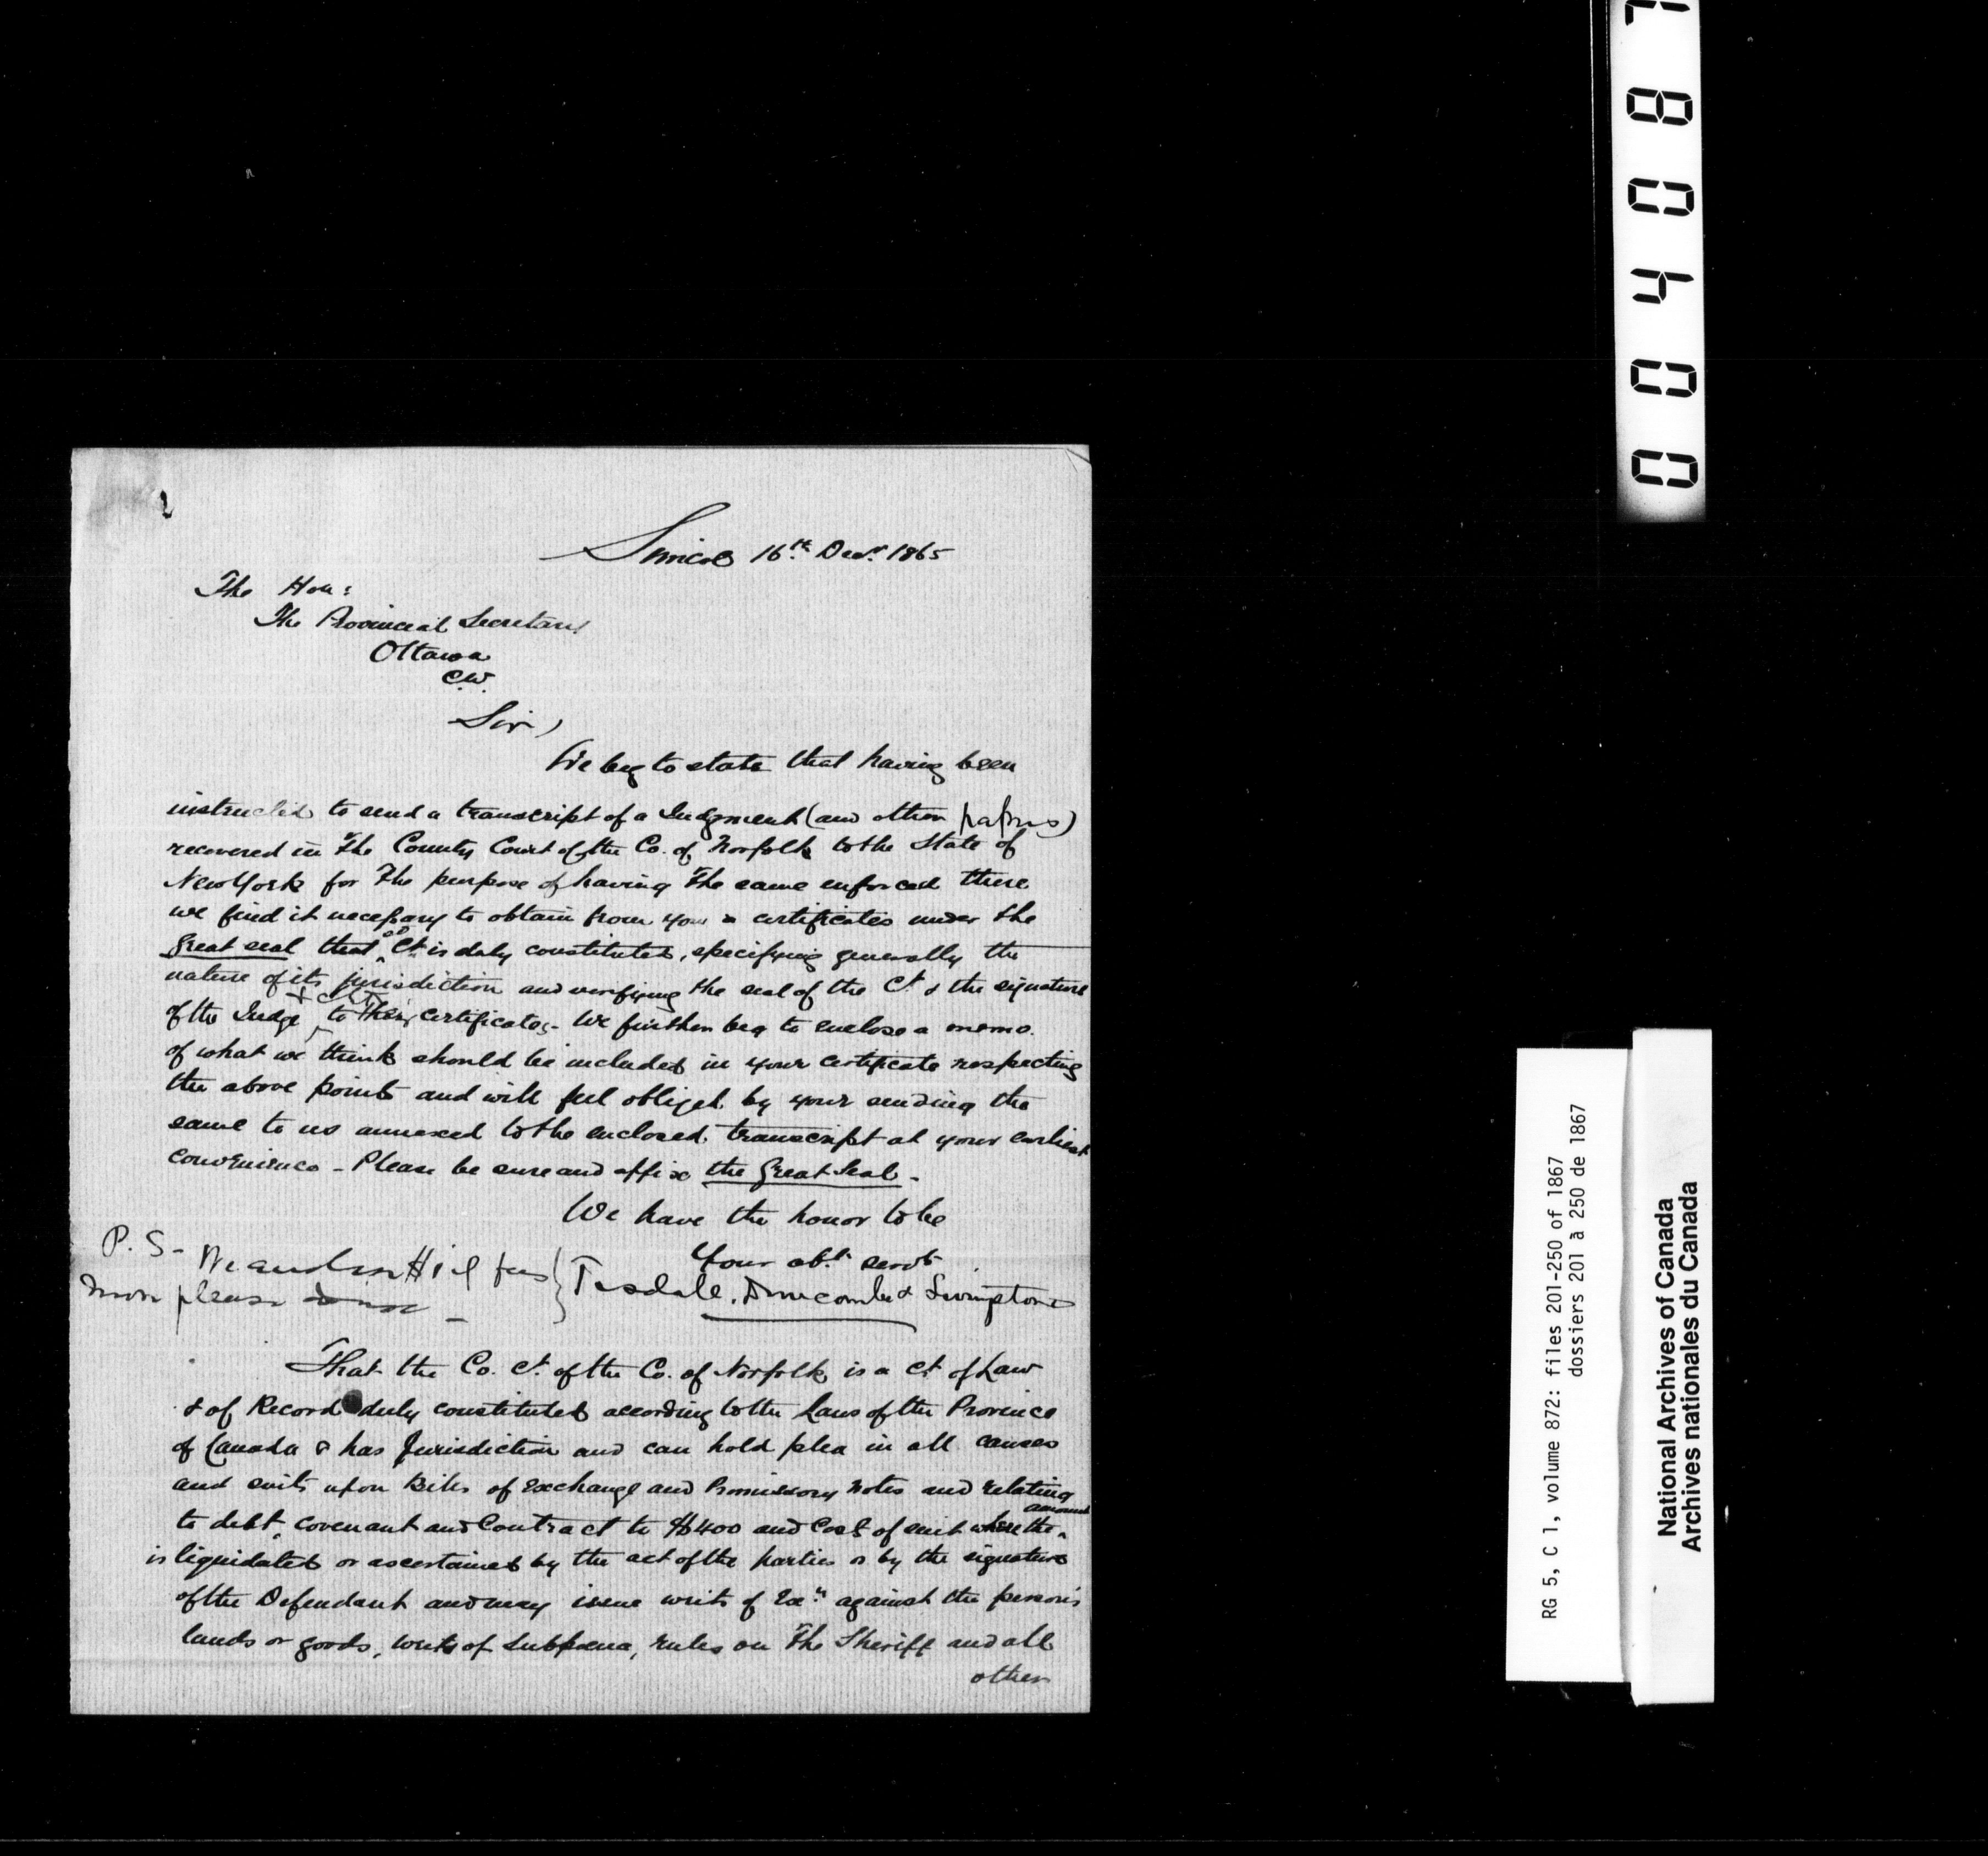 Simcoe 16th Decr. 1865
The Hon:
The Provincial Secretary
Ottawa
C.W.
Sir,
We beg to state that having been
instructed to send a transcript of a Judgment (and other papers)
recovered in The County Court of the Co. of Norfolk to the State of
New York for The purpose of having The same enforced there
we find it necessary to obtain from you a certificates under the
Great seal that sd Ct. is duly constituted, specifying generally the
nature of its jurisdiction and verifying the seal of the Ct. & the signature
of the Judge & Clk to their certificates. We further beg to enclose a memo.
of what we think should be included in your certificate respecting
the above points and will feel obliged by your sending the
same to us annexed to the enclosed transcript at your earliest
convenience - Please be sure and affix the Great Seal.
We have the honor to be
Your obt. servts
P.S- We enclose $1 fees
Tisdale, Duncombe & Livingstone
more please
That the Co. Ct. of the Co. of Norfolk is a Ct. of Law
& of Record duly constituted according to the Laws of the Province
of Canada & has Jurisdiction and can hold plea in all causes
and suits upon Bills of Exchange and Promissory Notes and relating
to debt, covenant and Contract to $400 and Cost of suit where the amount
is liquidated or ascertained by the act of the parties or by the signature
of the Defendant and may issue writs of Exn. against the person's
lands or goods, writs of Subpoena, rules on The Sheriff and all
other
004087
RG 5, C 1, volume 872: files 201-250 of 1867
dossiers 201 à 250 de 1867
National Archives of Canada
Archives nationales du Canada